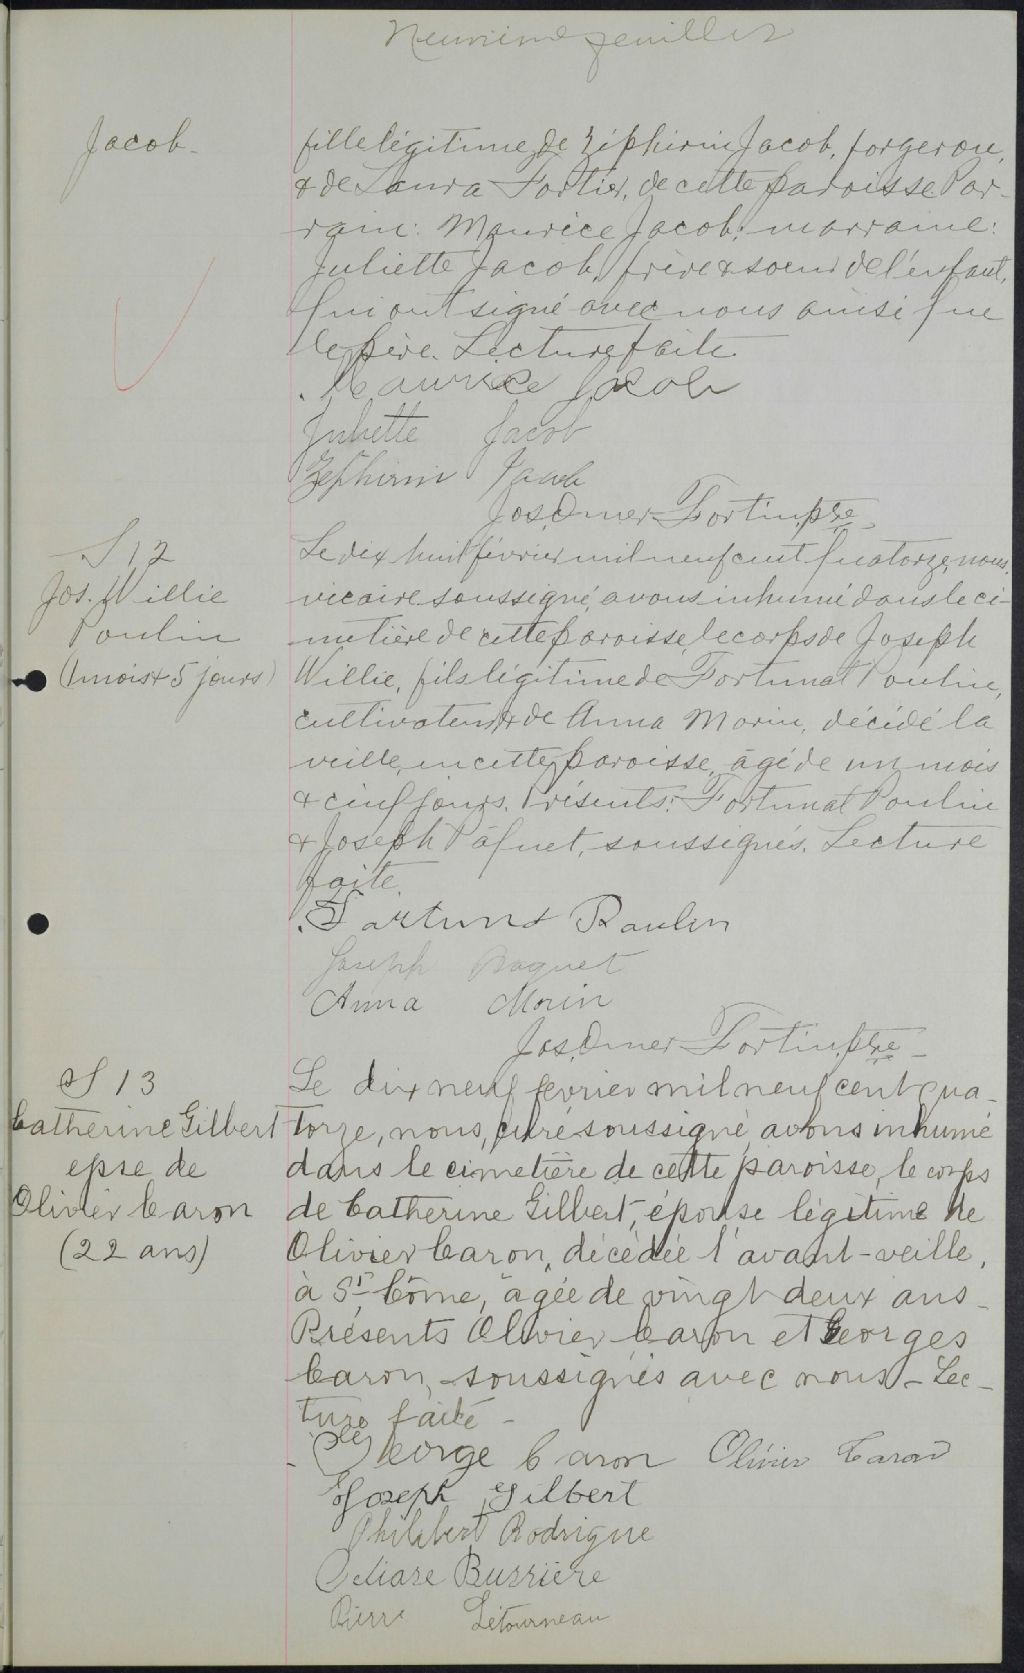 Neuvième feuillet
Jacob-
fille légitime de Zéphirin Jacob, forgeron,
& de Laura Fortier, de cette paroisse. Par-
rain: Maurice Jacob; marraine:
Juliette Jacob, frère & soeur de l'enfant,
qui ont signé avec nous ainsi que
le père. Lecture faite.
Maurice Jacob
Juliette Jacob
Zephirin Jacob
Jos. Omer Fortin, ptre
S 12
Jos. Willie
Poulin
(1 mois & 5 jours)
Le dix huit février mil neuf cent quatorze, nous,
vicaire soussigné, avons inhumé dans le ci-
metière de cette paroisse, le corps de Joseph
Willie, fils légitime de Fortunat Poulin,
cultivateur, & de Anna Morin, décédé la
veille, en cette paroisse, âgé de un mois
& cinq jours. Présents: Fortunat Poulin
& Joseph Pâquet, soussignés. Lecture
faite.
Fortunat Poulin
Joseph Paquet
Anna Morin
Jos. Omer Fortin, ptre
S 13
Catherine Gilbert
epse de
Olivier Caron
(22 ans)
Le dix neuf fevrier mil neuf cent qua-
torze, nous, curé soussigné avons inhumé
dans le cimetière de cette paroisse, le corps
de Catherine Gilbert, épouse légitime de
Olivier Caron, décédée l'avant-veille,
à St Côme, âgée de vingt deux ans-
Présents Olivier Caron et Georges
Caron, soussignés avec nous- Lec-
ture faite-
George Caron Olivier Caron
Joseph Gilbert
Philibert Rodrigue
Pierre Letourneau